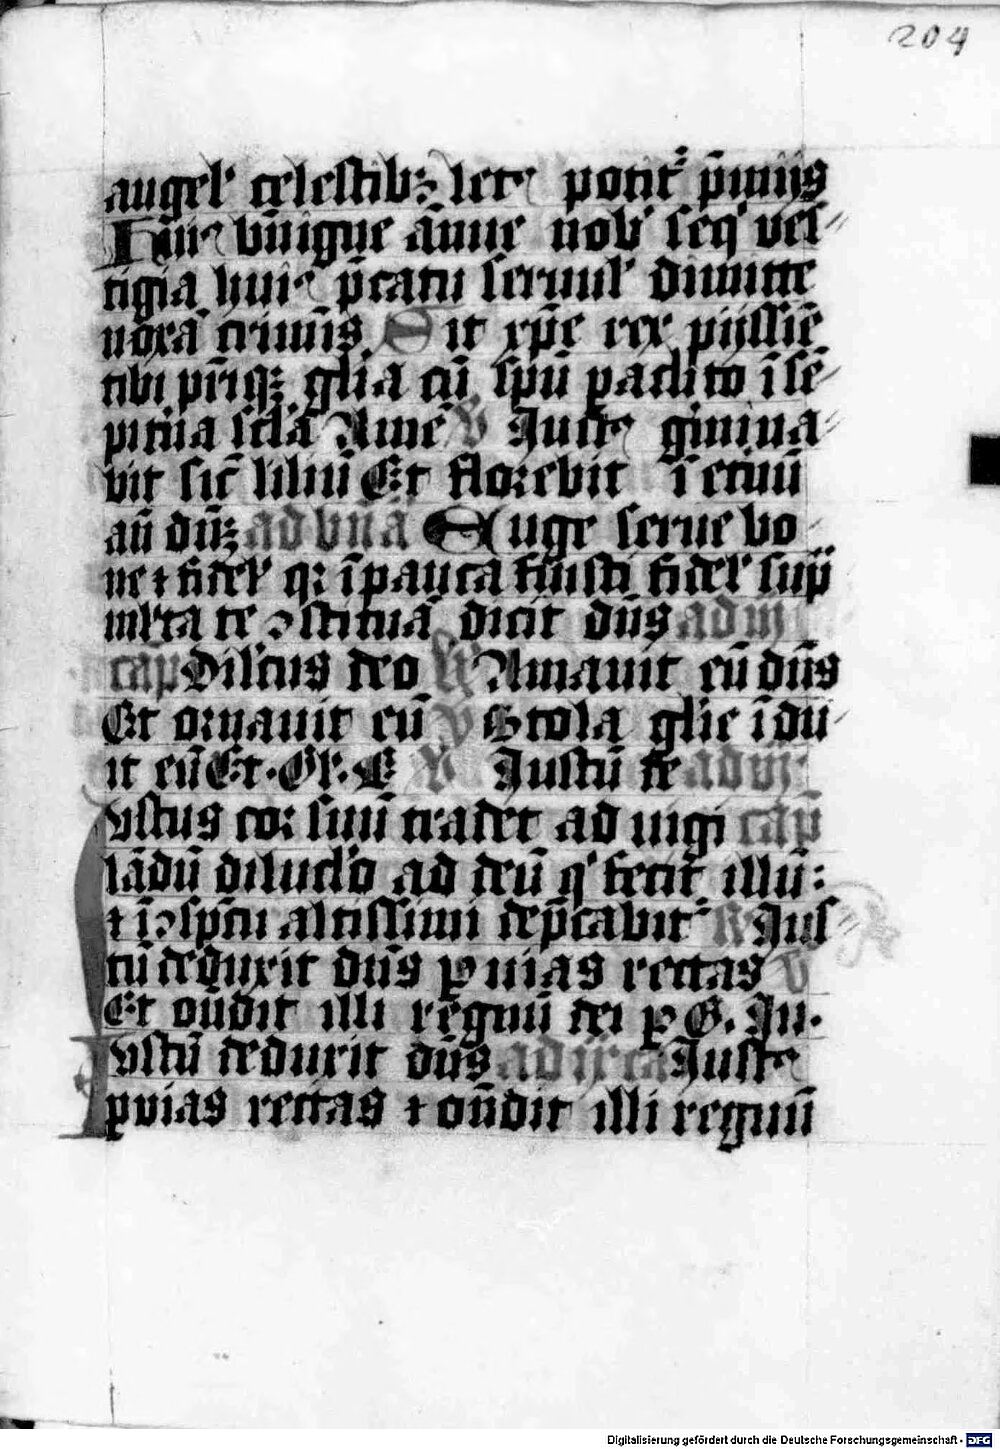 204
angel' celestibȝ let' potit' p̄miis
Hui' bn̄igne an̄ue nob' seq' ves⸗
tigia hui' p̄catu seruul' dimitte
noxā criminis Sit xp̄e rex piissiē
tibi pr̄iqȝ glīa cū spū paclito ī sē⸗
pitna sc̄lā Amē V Iust' gmina⸗
bit sic̄ liliū Et florebit ī etnū
an̄ dn̄ȝ ad bn̄a Euge serue bo⸗
ne ⁊ fidel' qꝛ ī pauca fuisti fidel' sup̄
ml'ta te ꝯstituā dicit dn̄s ad
cap̄ Dilc̄us deo Amauit eū dn̄s
Et oꝛnauit eū V Stola glīe īdu⸗
it eū Et. Gl'. Iustū de ad
Iustus coꝛ suū tradet ad uigi cap̄
lādū diluc'lo ad deū q' fecit illū:
⁊ ī ꝯspc̄tu altissimi dep̄cabit' R Ius⸗
tū deduxit dn̄s p uias rectas V
Et on̄dit illi regnū dei p G. Iu.
Iustū deduxit dn̄s ad Iust'
p uias rectas ⁊ on̄dit illi regnū
Digitalisierung gefördert durch die Deutsche Forschungsgemeinschaft - DFG